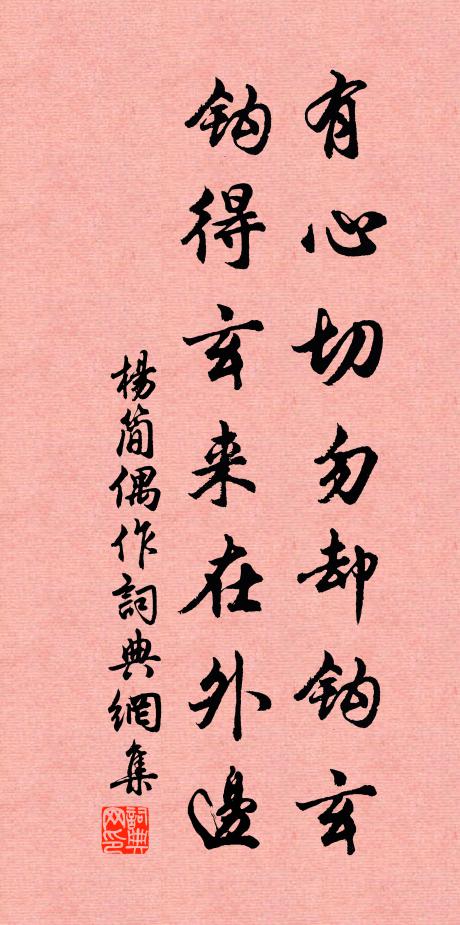 有心切勿却钩玄
钩得玄来在外邊
楊简偶作詞典網集
詞典网印